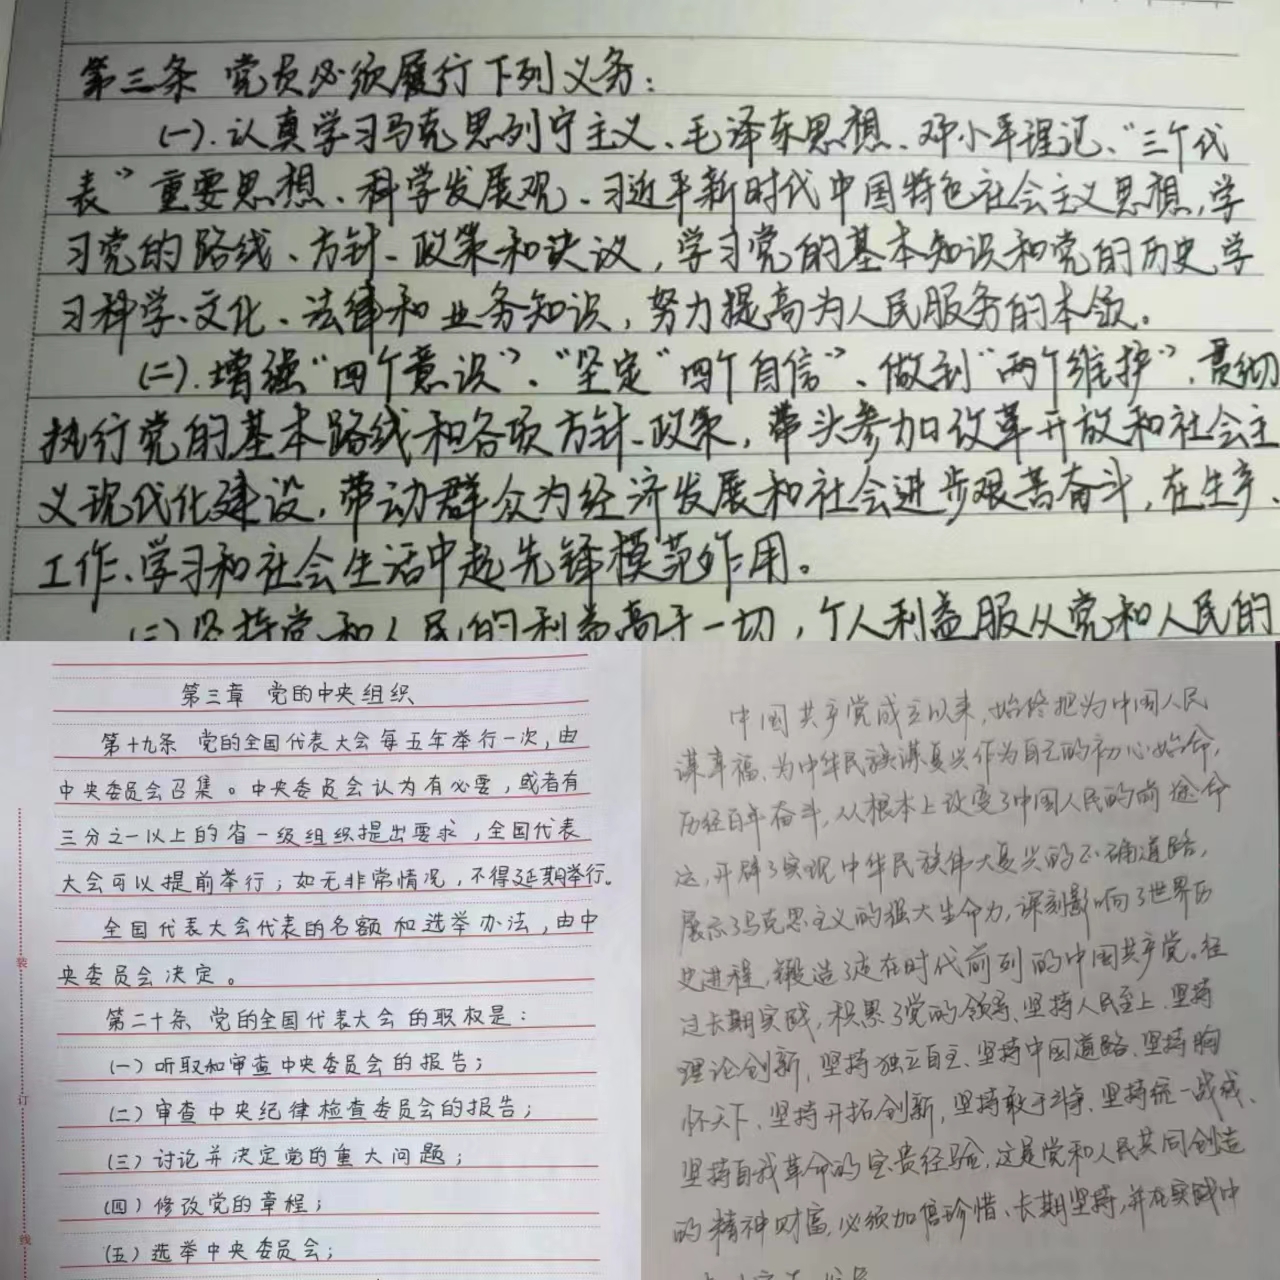 第三条 党员必须履行下列义务：
(一).认真学习马克思列宁主义、毛泽东思想、邓小平理论、“三个代
表”重要思想、科学发展观、习近平新时代中国特色社会主义思想,学
习党的路线、方针、政策和决议,学习党的基本知识和党的历史,学
习科学、文化、法律和业务知识,努力提高为人民服务的本领。
(二).增强“四个意识”、“坚定“四个自信”、做到“两个维护”,贯彻
执行党的基本路线和各项方针、政策,带头参加改革开放和社会主
义现代化建设,带动群众为经济发展和社会进步艰苦奋斗,在生产、
工作、学习和社会生活中起先锋模范作用。
(三)坚持党和人民的利益高于一切,个人利益服从党和人民的
第三章 党的中央组织
第十九条 党的全国代表大会每五年举行一次,由
中央委员会召集。中央委员会认为有必要,或者有
三分之一以上的省一级组织提出要求,全国代表
大会可以提前举行;如无非常情况,不得延期举行。
全国代表大会代表的名额和选举办法,由中
央委员会决定。
第二十条 党的全国代表大会的职权是:
(一)听取和审查中央委员会的报告;
(二)审查中央纪律检查委员会的报告;
(三)讨论并决定党的重大问题;
(四)修改党的章程;
(五)选举中央委员会;
装
订
线
中国共产党成立以来,始终把为中国人民
谋幸福、为中华民族谋复兴作为自己的初心始命,
历经百年奋斗,从根本上改变了中国人民的前途命
运,开辟了实现中华民族伟大复兴的正确道路,
展示了马克思主义的强大生命力,深刻影响了世界历
史进程,锻造了走在时代前列的中国共产党。经
过长期实践,积累了党的领导、坚持人民至上、坚持
理论创新,坚持独立自主、坚持中国道路、坚持胸
怀天下、坚持开拓创新,坚持敢于斗争、坚持统一战线、
坚持自我革命的宝贵经验,这是党和人民共同创造
的精神财富,必须加倍珍惜、长期坚持,并在实践中